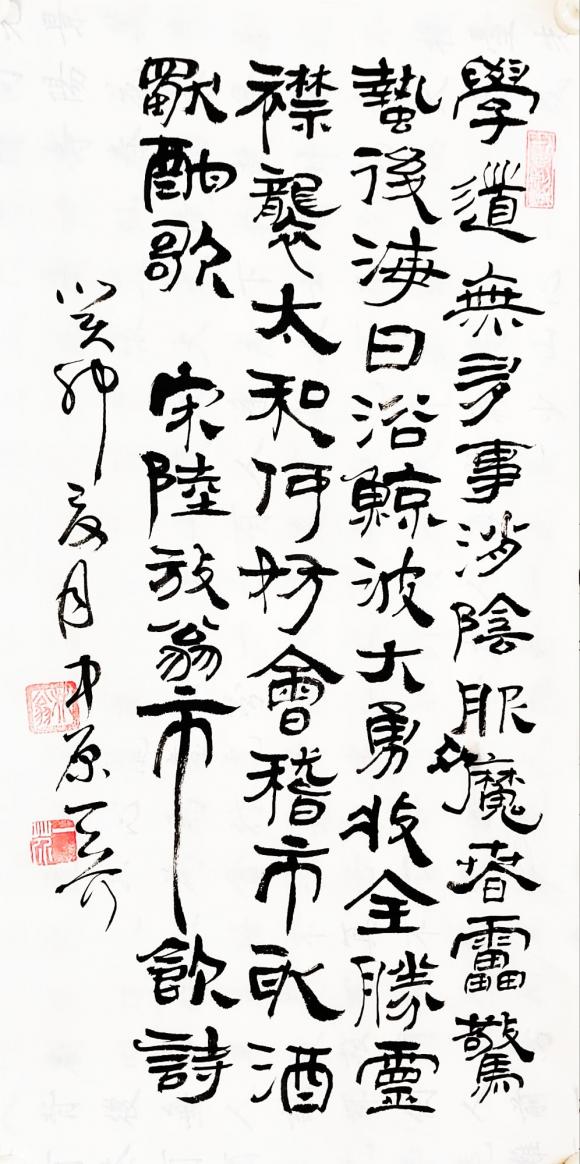 學道無多事消陰服衆魔春雷驚
蟄後海日浴鯨波大勇收全勝靈
襟襲太和何妨會稽市取酒
獻酬歌 宋陸放翁市飲詩
癸卯夏月中原